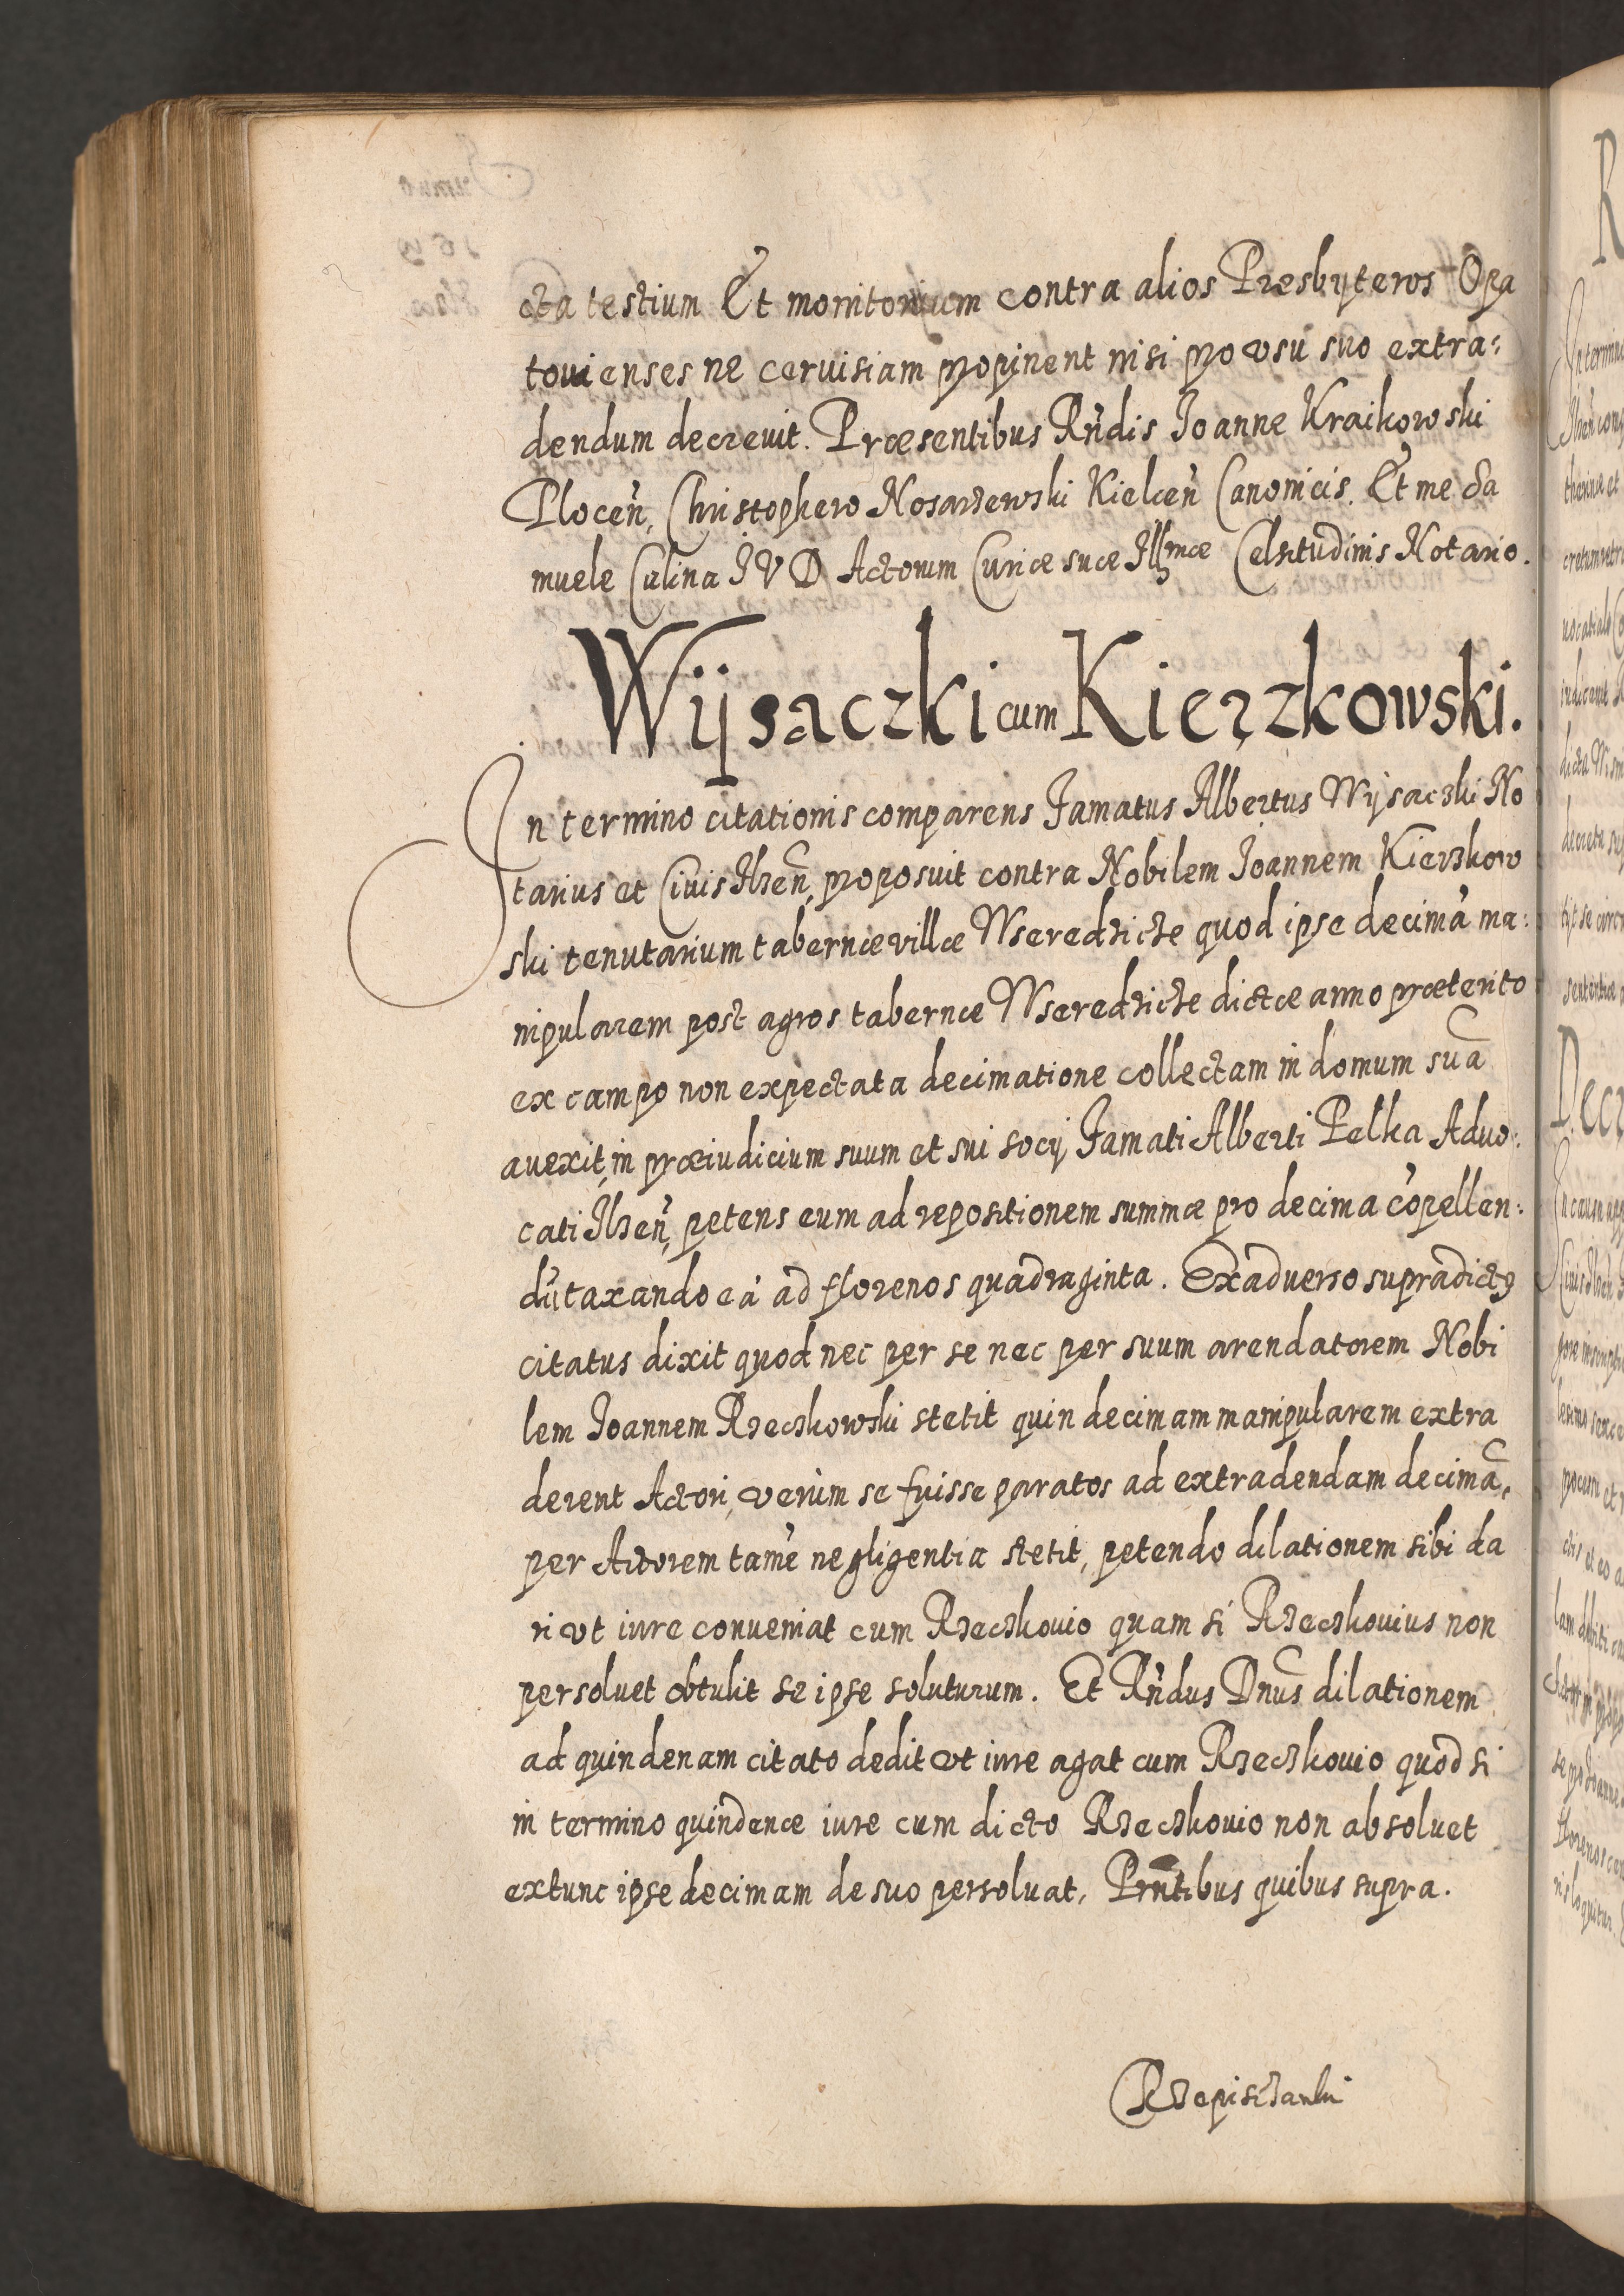 cta testium Et monitorium contra alios Præsbyteros Opa
touienses ne ceruisiam propinent nisi pro vsu suo extra:
dendum decreuit. Præsentibus Rñdis Joanne Kraikowski
Plocen̄, Christophero Nosarzewski Kielcen̄ Canonicis. Et me Sa
muele Culina J V D Actorum Curiæ suæ Illmæ Celsitudinis Notario.
Wÿsaczki cum Kierzkowski.
In termino citationis comparens Famatus Albertus Wÿsaczki No
tarius et Ciuis Ilzen̄, proposuit contra Nobilem Joannem Kierzkow
ski tenutarium tabernæ villæ Wseredzicze quod ipse decimā ma:
nipularem post agros tabernæ Wseredzicze dictæ anno præterito
ex campo non expectata decimatione collectam in domum suā
auexit, in præiudicium suum et sui socÿ Famati Alberti Pelka Aduo:
cati Ilzen̄, petens eum ad repositionem summæ pro decima cōpellen:
dū taxando eā ad florenos quadraginta. Ex aduerso supradictꝯ
citatus dixit quod nec per se nec per suum arendatorem Nobi
lem Joannem Rzeczkowski stetit quin decimam manipularem extra
derent Actori, verùm se fuisse paratos ad extradendam decimā,
per Actorem tamē negligentia stetit, petendo dilationem sibi da
ri vt iure conueniat cum Rzeczkouio quam si Rzeczkouius non
persoluet obtulit se ipse soluturum. Et Rñdus Dnūs dilationem
ad quindenam citato dedit vt iure agat cum Rzeczkouio quod si
in termino quindenæ iure cum dicto Rzeczkouio non absoluet
extunc ipse decimam de suo persoluat, Prñtibus quibus supra.